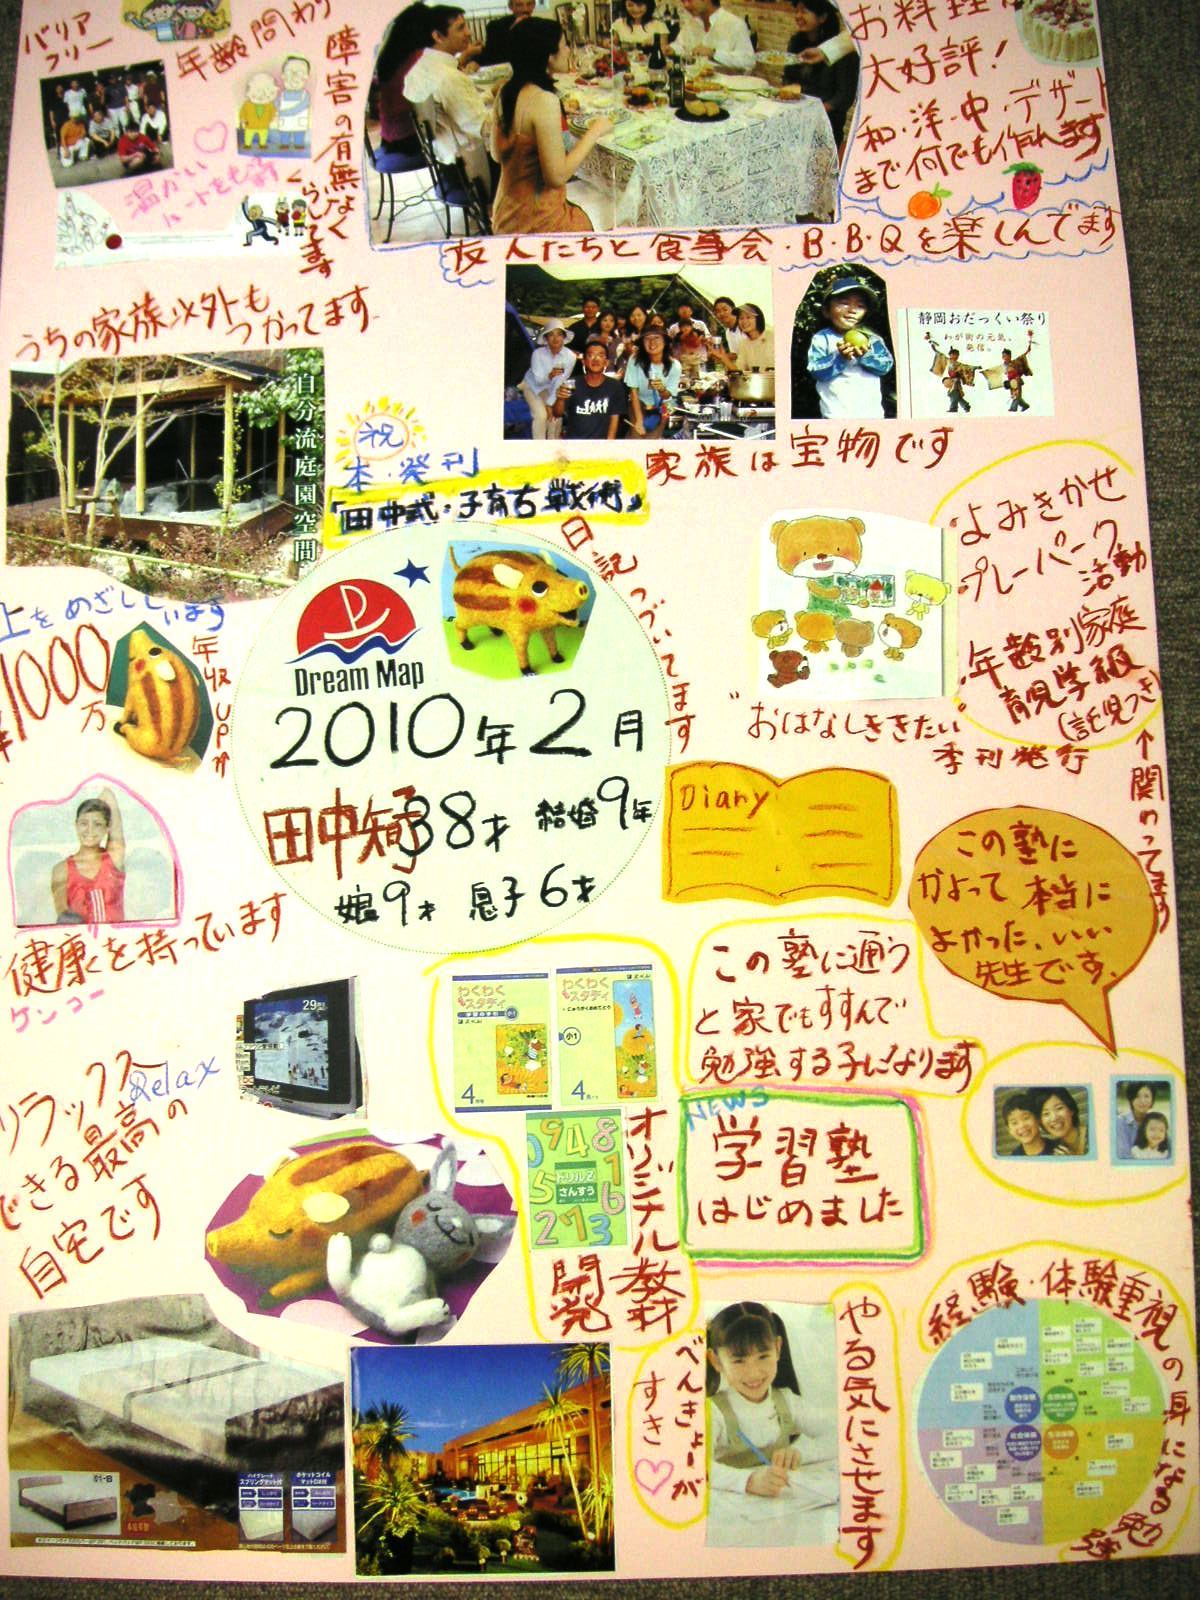 バリア
フリー
年齢問わず
障害の有無なく
くらしてます
温かい
ハートをもつ
お料理
大好評!
和・洋・中・デザート
まで何でも作れます
友人たちと食事会・B・B・Qを楽しんでます
うちの家族以外も
つかってます
自分流庭園空間
静岡おだっくい祭り
わが街の元気、
発信。
家族は宝物です
祝
本・発刊
「田中式・子育て戦術」
日記つづいてます
よみきかせ
プレーパーク
活動
年齢別家庭
育児学級
(託児つき)
↑関わってます
"おはなしききたい"
季刊発行
上をめざしています
¥1000万
年収UP↑
Dream Map
2010年2月
田中知子
38才 結婚9年
娘9才 息子6才
Diary
この塾に
かよって本当に
よかった、いい
先生です。
健康を持っています
ケンコー
リラックス
Relax
できる最高の
自宅です
29
わくわく
スタディ
小1
4
わくわく
スタディ
小1
4
ドリル2
さんすう
オリジナル教材
開発
この塾に通う
と家でもすすんで
勉強する子になります
NEWS
学習塾
はじめました
べんきょーが
すき♡
やる気にさせます
経験・体験重視の身になる勉強
01-B
ポケットコイル